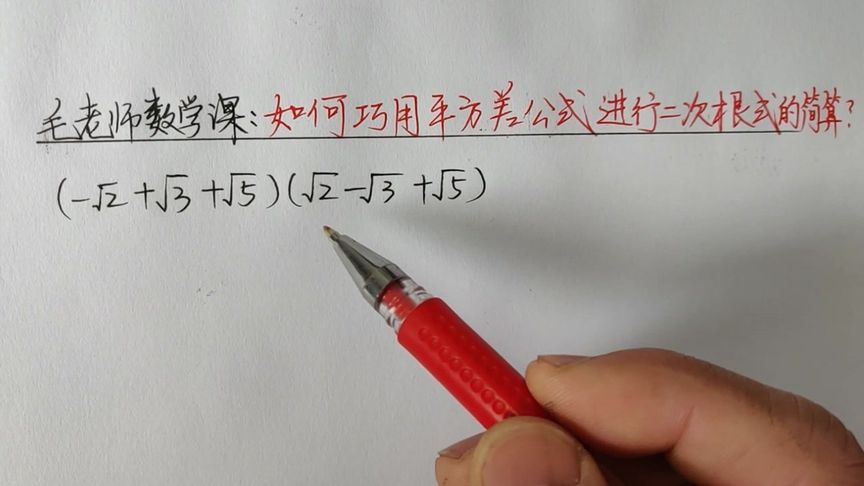 毛老师数学课:如何巧用平方差公式进行二次根式的简算?
(-√2+√3+√5)(√2-√3+√5)